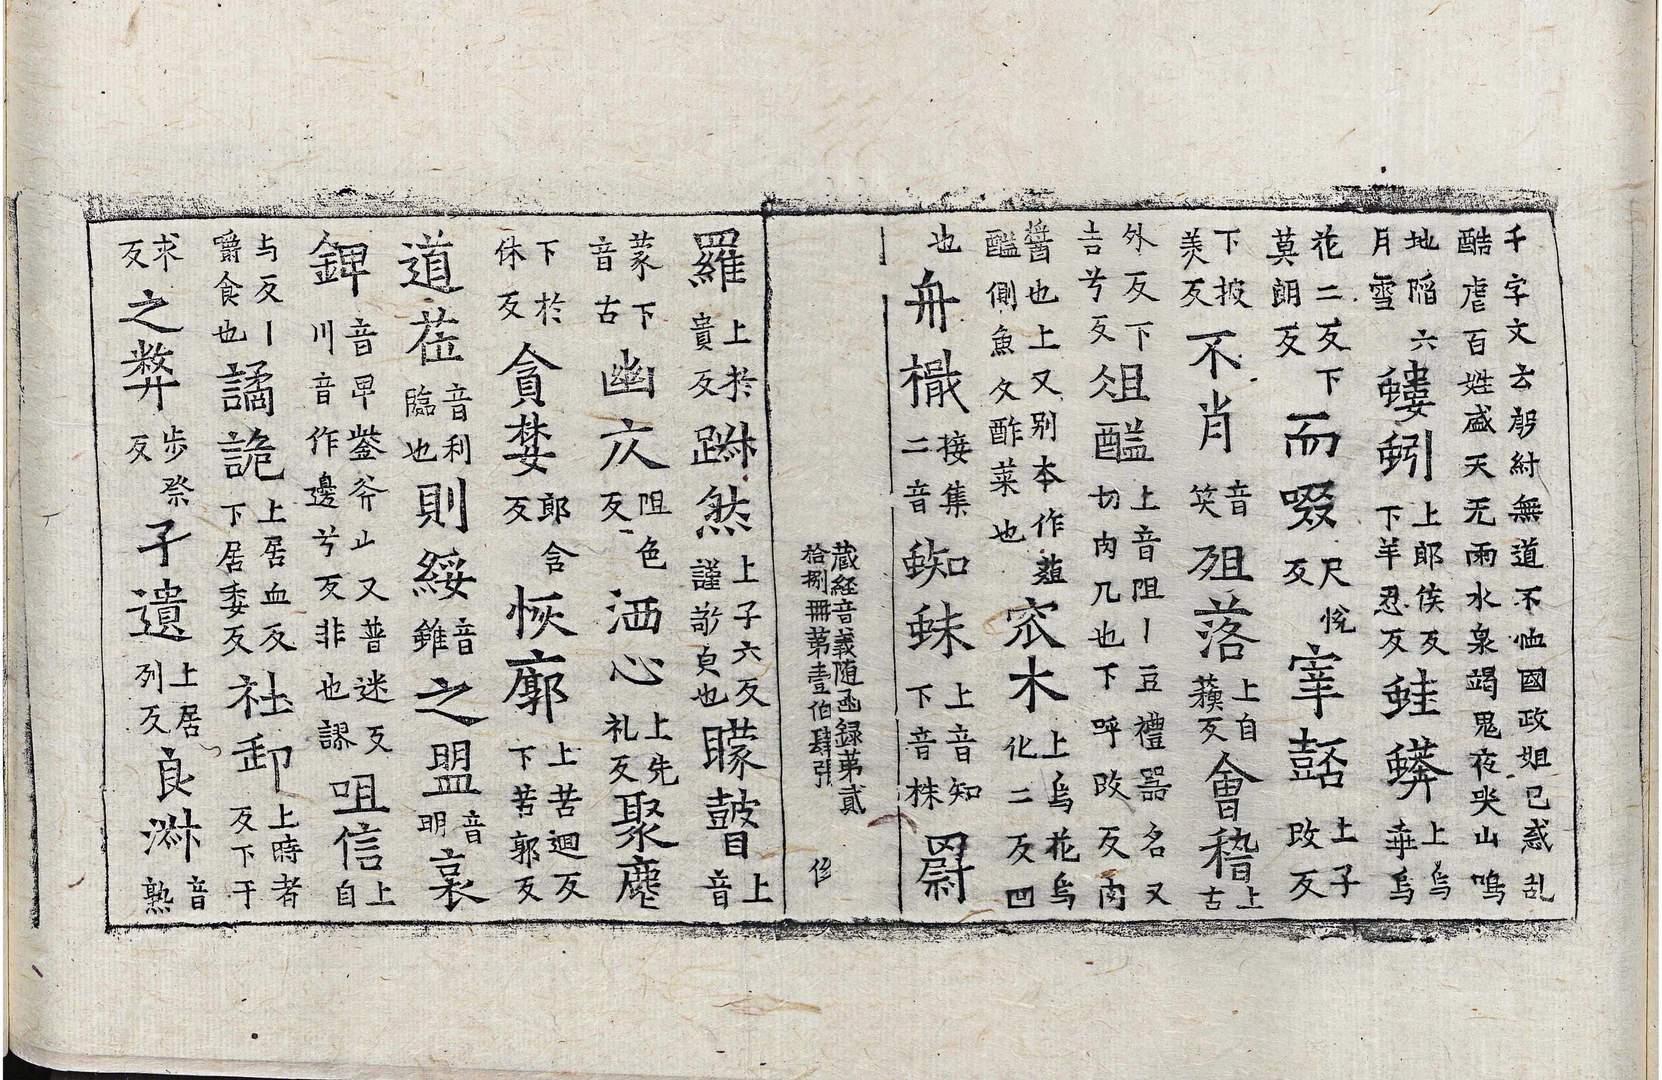 千字文云躬紂無道不恤國政妲己惑乱
酷虐百姓盛天无雨水泉竭鬼夜哭山鳴
地陷六月雪 螻蚓 上郎侯反下羊忍反 蛙蠎 上烏垂烏
花二反下莫朗反 而啜 尺悅反 宰嚭 上子改反
下披美反 不肖 音笑 殂落 上自反 會稽 上古
外反下吉兮反 俎醢 上音阻丨豆禮器名又切肉几也下呼改反肉
醬也上又别本作葅醢側魚反酢菜也 木 上烏花烏化二反凹
也 舟檝 接集二音 蜘蛛 上音知下音株 罻
藏經音義随函録第貳
拾捌冊第壹伯肆張
羅 上於貴反 踧然 上子六反謹敬皃也 矇瞽 上音
蒙下音古 幽仄 阻色反 洒心 上先礼反 聚塵
下於休反 貪婪 郎含反 恢廓 上苦迴反下苦郭反
道莅 音利臨也 則綏 音錐 之盟 音明 裒
錍 音卑鎣斧止又普迷反川音作邊兮反非也謬 咀信 上自
与反丨嚼食也 譎詭 上居血反下居委反 社卸 上時者反下于
求反 之弊 步祭反 孑遺 上居列反 良淋 音熟